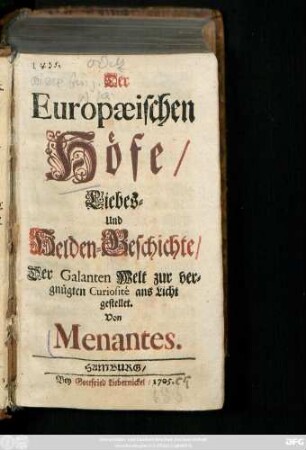 Der
Europæischen
Höfe/
Liebes-
Und
Helden-Geschichte/
Der Galanten Welt zur ver-
gnügten Curiosité ans Licht
gestellet.
Von
Menantes.
HAMBURG/
Bey Gottfried Liebernickel 1705.